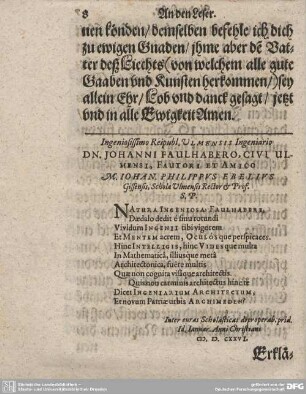 8 An den Leser.
nen könden / demselben befehle ich dich
zu ewigen Gnaden / jhme aber dē Vat-
ter deß Liechts (von welchem alle gute
Gaaben vnd Kunsten herkommen /) sey
allein Ehr / Lob vnd danck gesagt / jetzt
vnd in alle Ewigkeit Amen.
Ingeniosissimo Reipubl. ULMENSIS Ingeniario
DN. JOHANNI FAULHABERO, CIVI UL-
MENSI, FAUTORI ET AMICO
M. JOHAN. PHILIPPUS EBELIUS
Gissensis, Scholæ Ulmensis Rector & Prof.
S. P.
NATURA INGENIOSA FAULHABERI,
Dædalo dedit è sinu rotundi
Vividum INGENII tibi vigorem
Et MENTEM acrem, OCULOS que perspicaces.
Hinc INTELLIGIS, hinc VIDES que multa
In Mathematicâ, illiusque metâ
Architectonicâ, fuêre multis
Quæ non cognita visáque architectis.
Quin non carminis architectus hinc te
Dicet INGENIARUM ARCHITECTUM,
Et novum Patriæ urbis ARCHIMEDEM?
Inter curas Scholasticas deproperab. prid.
Id. Januar. Anni Christiani
CIↃ. DC. XXVI.
Erklä-